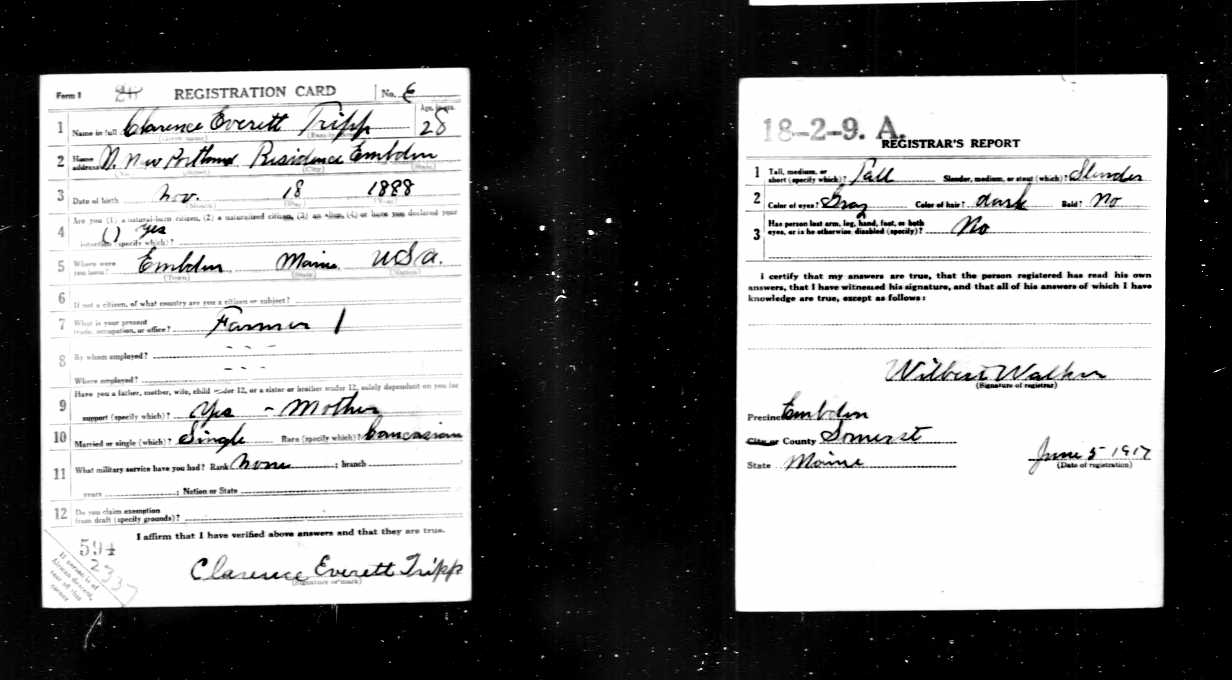 Form 1 REGISTRATION CARD No. 6
1 Name in full Clarence Everett Tripp Age, in yrs. 28
(Family name)
2 Home address N. New Portland Residence Embden
(No.) (Street) (City) (State)
3 Date of birth Nov. 18 1888
(Month) (Day) (Year)
4 Are you (1) a natural-born citizen, (2) a naturalized citizen, (3) an alien, (4) or have you declared your
intention (specify which)? (1) Yes
5 Where were you born? Embden Maine U.S.A.
(Town) (State) (Nation)
6 If not a citizen, of what country are you a citizen or subject?
7 What is your present trade, occupation, or office? Farmer 1
8 By whom employed? - - -
Where employed? - - -
9 Have you a father, mother, wife, child under 12, or a sister or brother under 12, solely dependent on you for
support (specify which)? Yes - Mother
10 Married or single (which)? Single Race (specify which)? Caucasian
11 What military service have you had? Rank None ; branch
years ; Nation or State
12 Do you claim exemption from draft (specify grounds)?
I affirm that I have verified above answers and that they are true.
Clarence Everett Tripp
(Signature or mark)
594
2337
If person is of
African descent,
tear off this
corner
18-2-9. A.
REGISTRAR'S REPORT
1 Tall, medium, or short (specify which)? Tall Slender, medium, or stout (which)? Slender
2 Color of eyes? Gray Color of hair? dark Bald? No
3 Has person lost arm, leg, hand, foot, or both
eyes, or is he otherwise disabled (specify)? No
I certify that my answers are true, that the person registered has read his own
answers, that I have witnessed his signature, and that all of his answers of which I have
knowledge are true, except as follows:
Wilbert Walker
(Signature of registrar)
Precinct Embden
City or County Somerset
State Maine June 5 1917
(Date of registration)